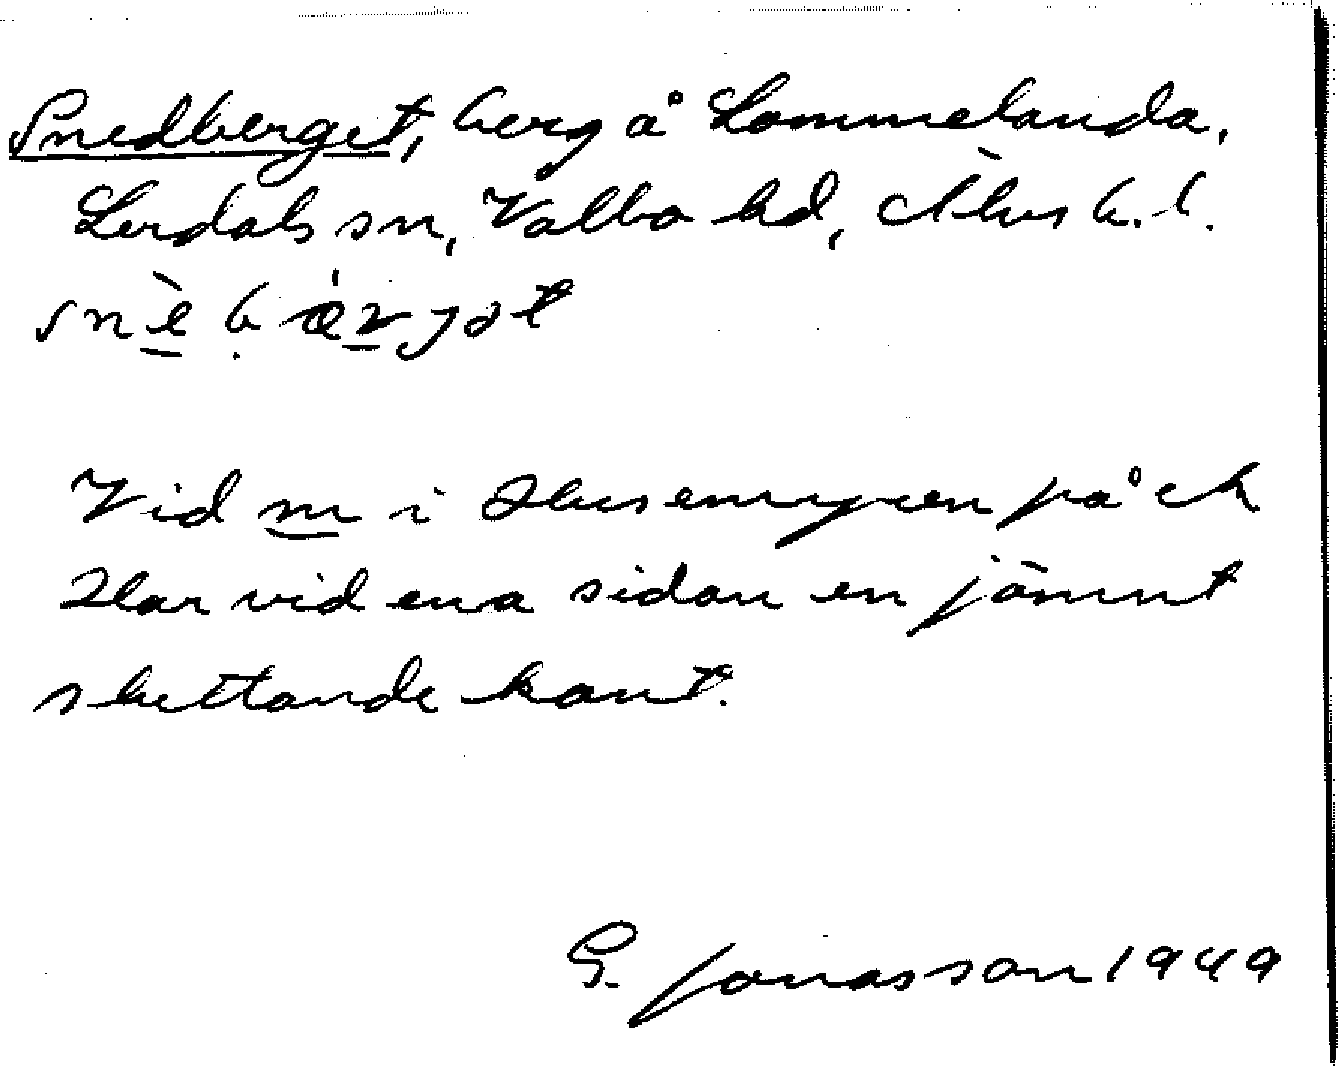 Snedberget, berg å Lommelanda,
Lerdals sn, Valbo hd, Älvs b. l.
snὲ bærjət
Vid m i Husemyren på ek
Har vid ena sidan en jämnt
sluttande kant.
G. Jonasson 1949